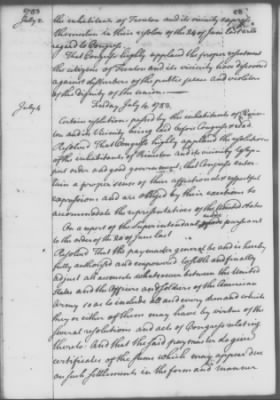 1783
July 2.
the inhabitants of Trenton and its vicinity express
themselves in their resolves of the 24 of June last with
regard to Congress.
That Congress highly applaud the proper resentment
the citizens of Trenton and its vicinity have discovered
against disturbers of the public peace and violators
of the dignity of the union.
July 4
Friday July 4. 1783.
Certain resolutions passed by the inhabitants of Prince
ton and its vicinity being laid before Congress
Resolved That Congress highly applaud the
of the inhabitants of Princeton and its vicinity
port order and good government, that Congress enter
tain a proper sense of their affectionate & respectful
expressions and are obliged by their exertions to
accommodate the representatives of the United States
On a report of the Superintendant pursuant
to the order of the 20 of June last
Resolved That the paymaster general be and is hereby
fully authorised and empowered to settle and finally
adjust all accounts whatsoever between the United
States and the Officers and soldiers of the American
Army so as to include all and every demand which
they or either of them may have by virtue of the
several resolutions and acts of Congress relating
thereto. And that the said paymaster do give
certificates of the sums which may appear due
on such settlements in the form and manner